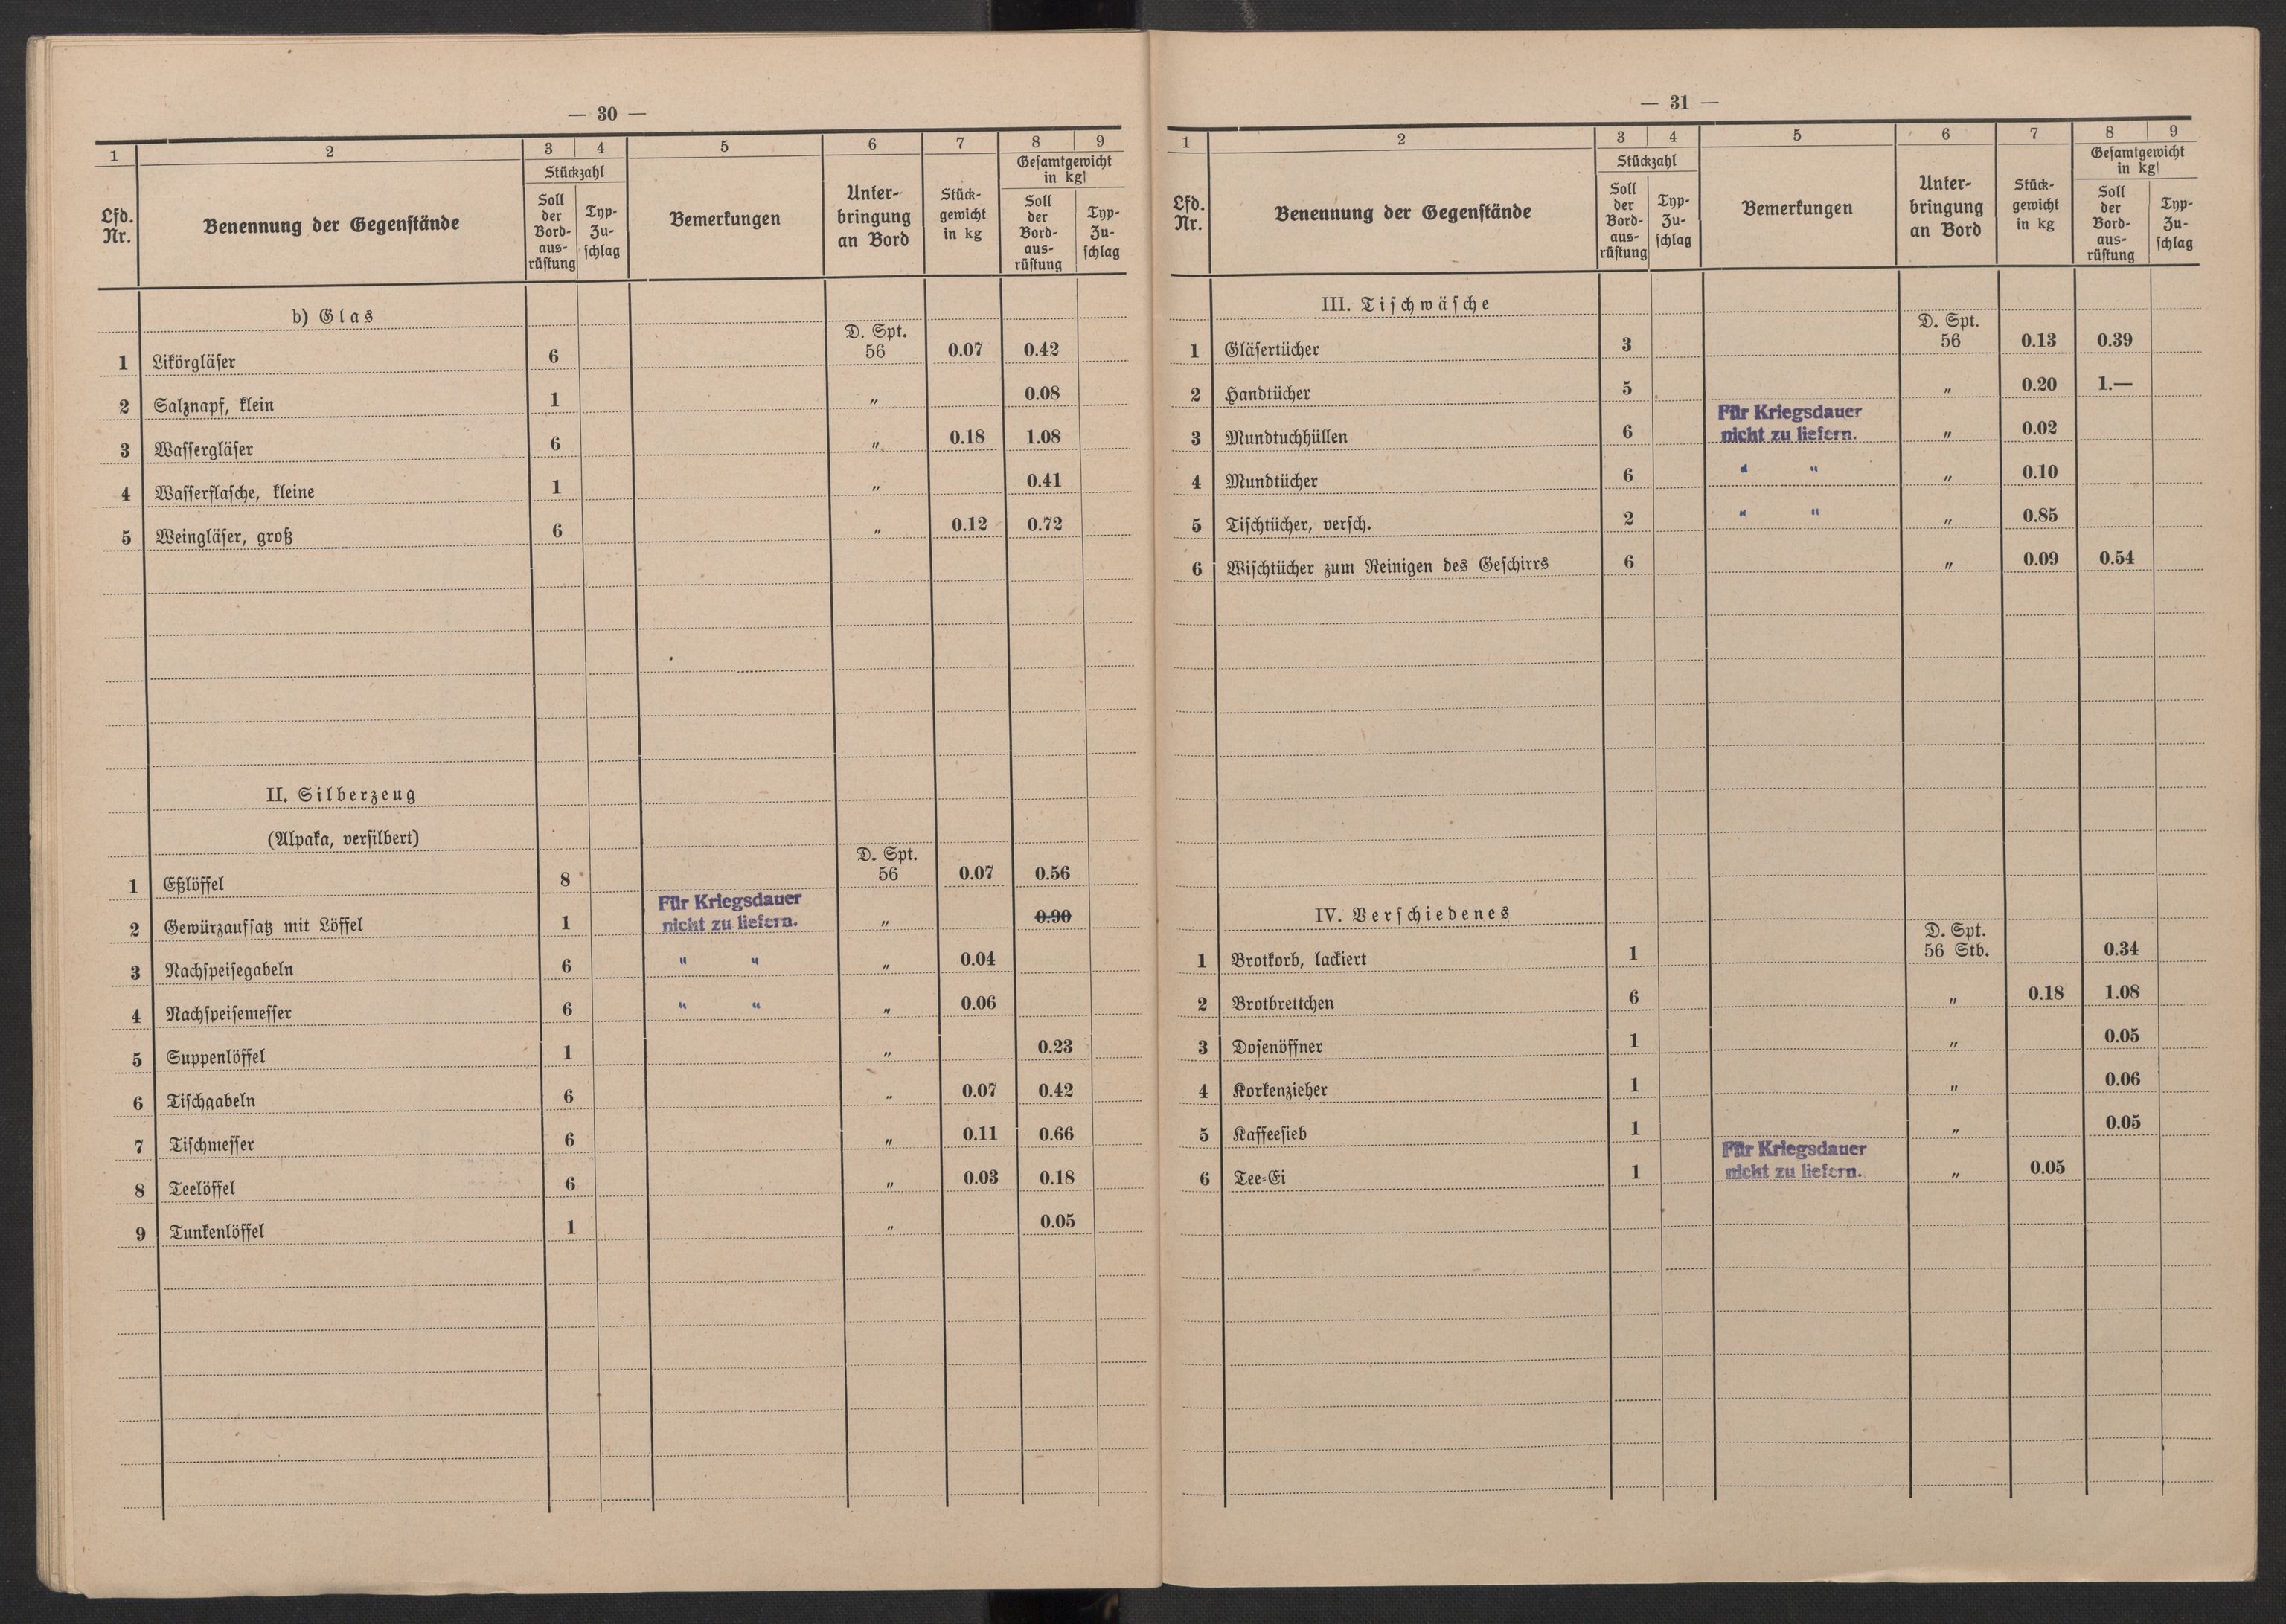 — 30 —
1 2 3 4 5 6 7 8 9
Lfd. Nr. Benennung der Gegenstände Stückzahl Soll der Bord-aus-rüstung Typ-Zu-schlag Bemerkungen Unter-bringung an Bord Stück-gewicht in kg Gesamtgewicht in kg Soll der Bord-aus-rüstung Typ-Zu-schlag
b) Glas
D. Spt.
1 Likörgläser 6 56 0.07 0.42
2 Salznapf, klein 1 „ 0.08
3 Wassergläser 6 „ 0.18 1.08
4 Wasserflasche, kleine 1 „ 0.41
5 Weingläser, groß 6 „ 0.12 0.72
II. Silberzeug
(Alpaka, versilbert)
D. Spt.
1 Eßlöffel 8 56 0.07 0.56
Für Kriegsdauer
2 Gewürzaufsatz mit Löffel 1 nicht zu liefern. „ 0.90
3 Nachspeisegabeln 6 " " „ 0.04
4 Nachspeisemesser 6 " " „ 0.06
5 Suppenlöffel 1 „ 0.23
6 Tischgabeln 6 „ 0.07 0.42
7 Tischmesser 6 „ 0.11 0.66
8 Teelöffel 6 „ 0.03 0.18
9 Tunkenlöffel 1 „ 0.05
— 31 —
1 2 3 4 5 6 7 8 9
Lfd. Nr. Benennung der Gegenstände Stückzahl Soll der Bord-aus-rüstung Typ-Zu-schlag Bemerkungen Unter-bringung an Bord Stück-gewicht in kg Gesamtgewicht in kg Soll der Bord-aus-rüstung Typ-Zu-schlag
III. Tischwäsche
D. Spt.
1 Gläsertücher 3 56 0.13 0.39
2 Handtücher 5 „ 0.20 1.—
Für Kriegsdauer
3 Mundtuchhüllen 6 nicht zu liefern. „ 0.02
4 Mundtücher 6 " " „ 0.10
5 Tischtücher, versch. 2 " " „ 0.85
6 Wischtücher zum Reinigen des Geschirrs 6 „ 0.09 0.54
IV. Verschiedenes
D. Spt.
1 Brotkorb, lackiert 1 56 Stb. 0.34
2 Brotbrettchen 6 „ 0.18 1.08
3 Dosenöffner 1 „ 0.05
4 Korkenzieher 1 „ 0.06
5 Kaffeesieb 1 „ 0.05
Für Kriegsdauer
6 Tee-Ei 1 nicht zu liefern. „ 0.05